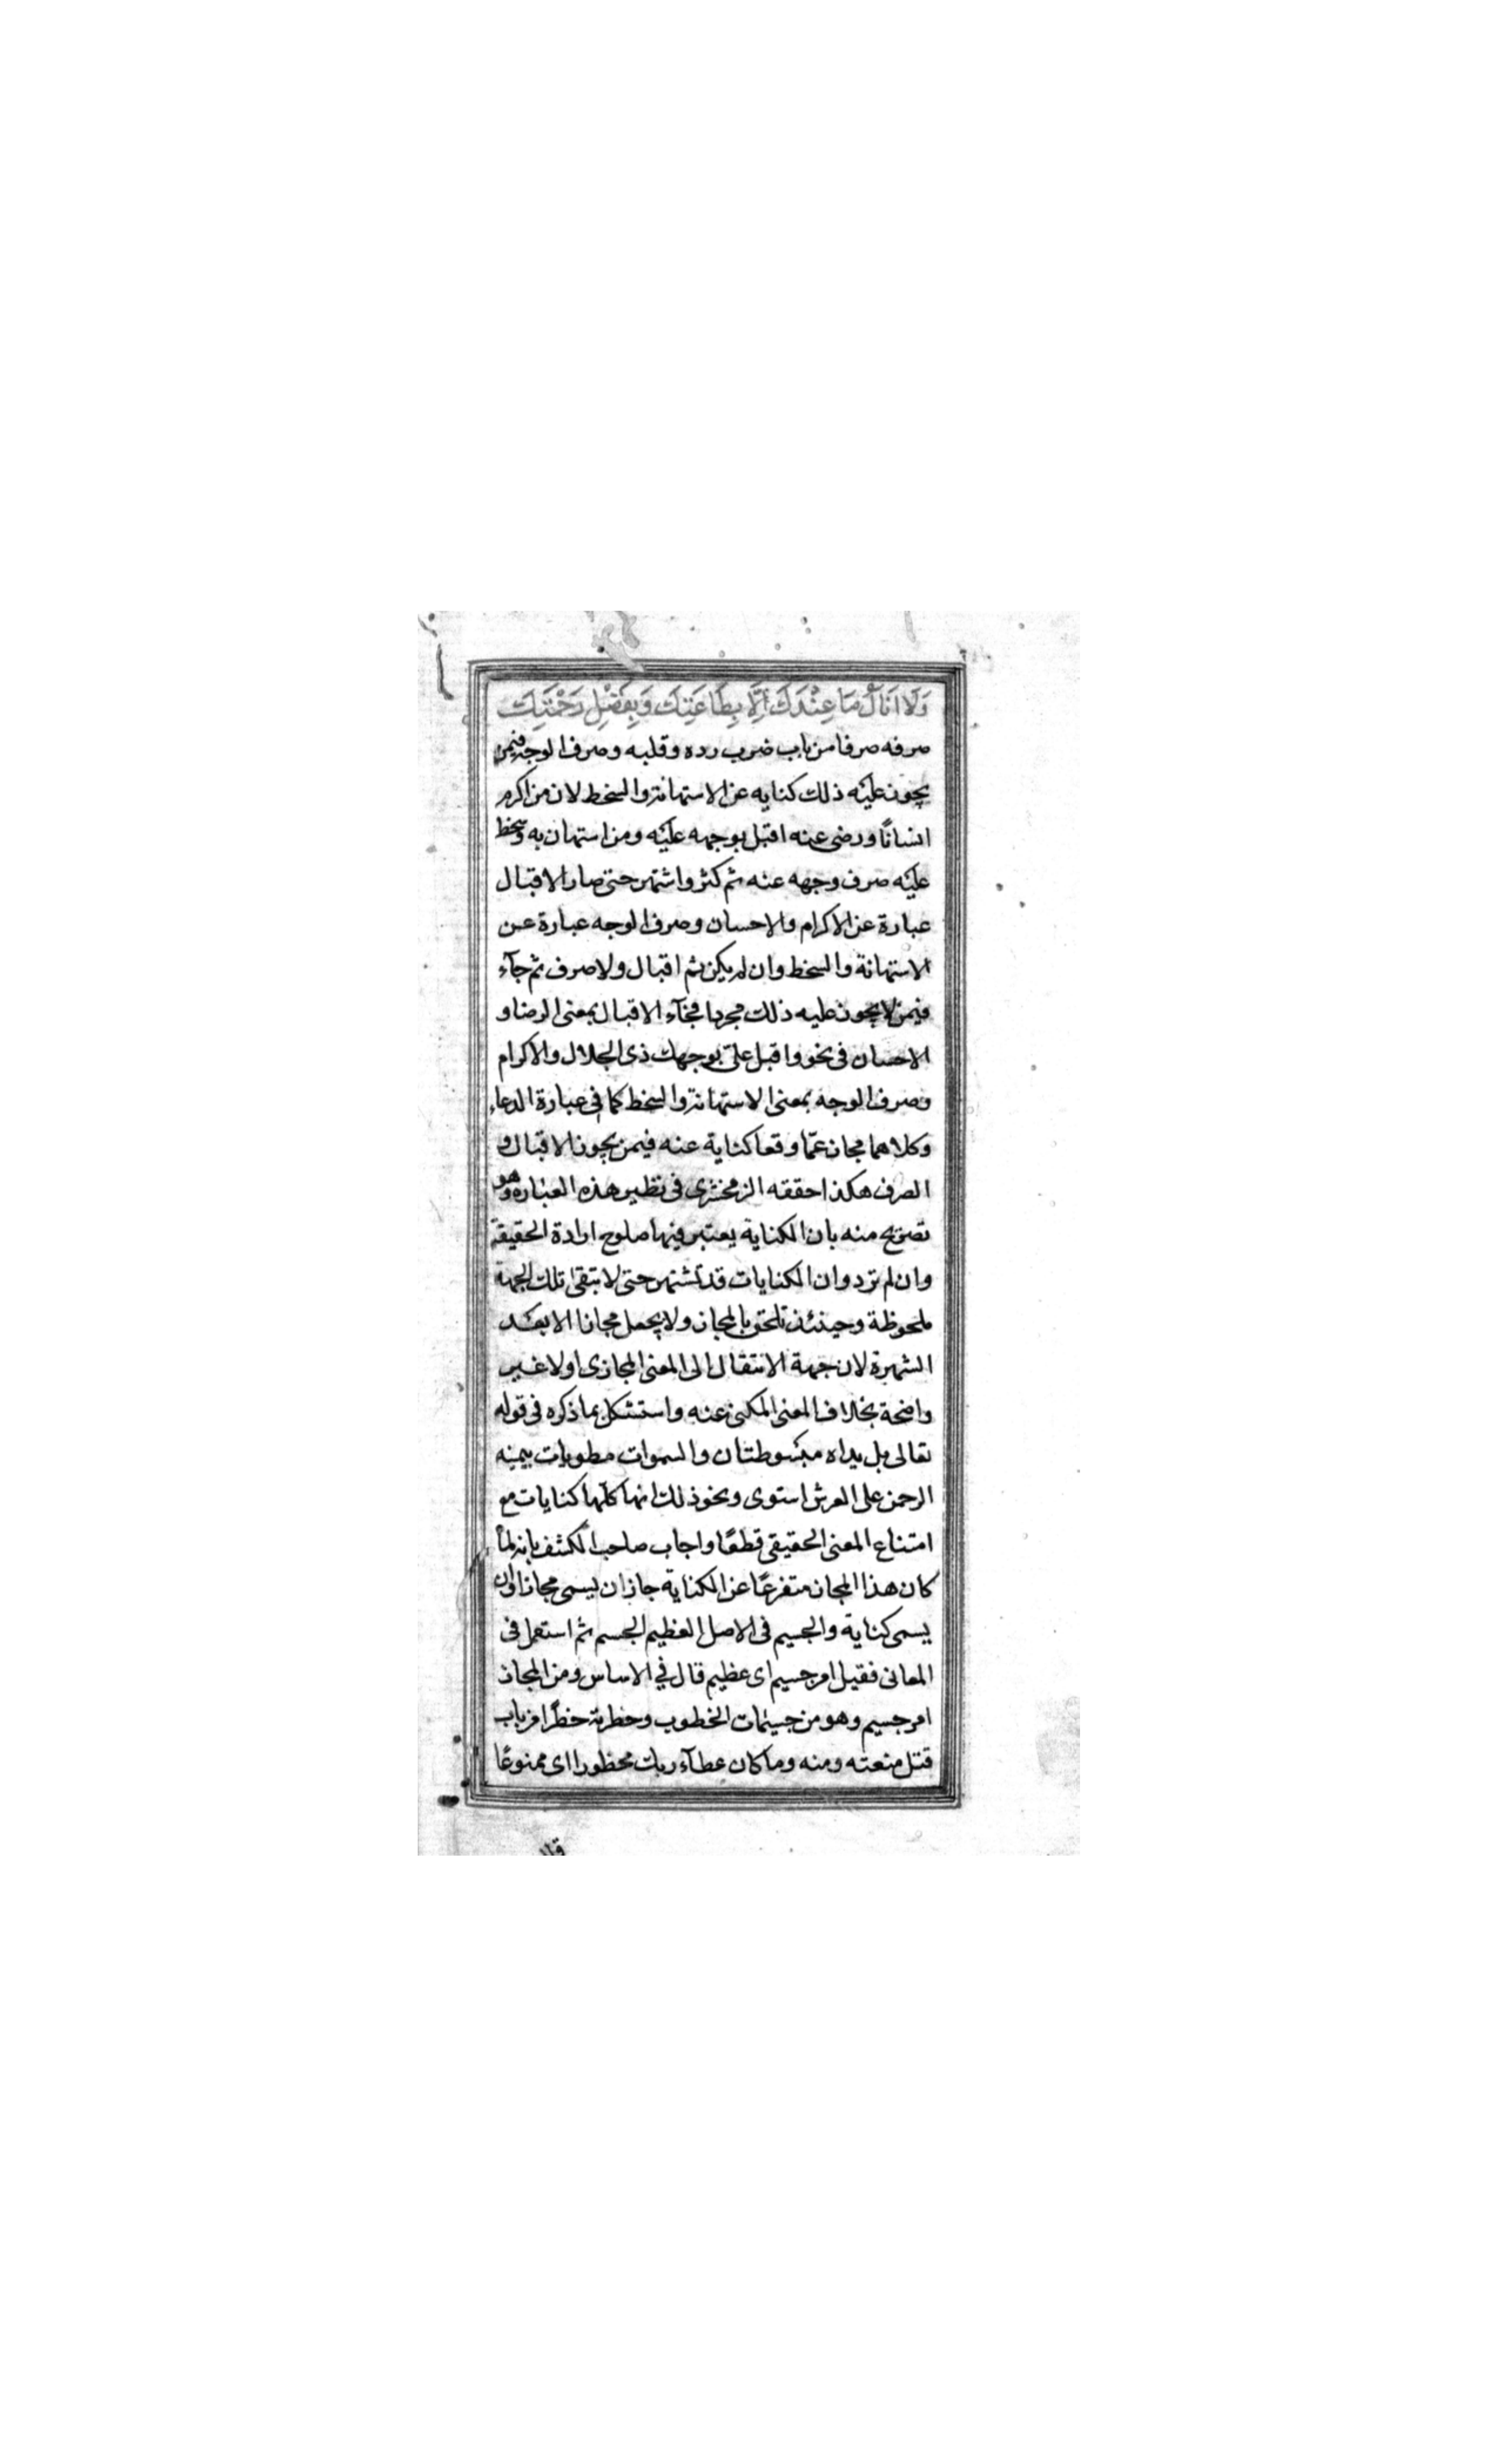 وَلَا اَنَالُ مَا عِنْدَكَ اِلَّا بِطَاعَتِكَ وَبِفَضْلِ رَحْمَتِكَ
صرفه صرفا من باب ضرب رده وقلبه وصرف الوجه فيمن
يجوز عليه ذلك كنايه عن الاستهانة والسخط لان من اكرم
انسانًا ورضى عنه اقبل بوجهه عليه ومن استهان به وسخط
عليه صرف وجهه عنه ثم كثر واشتهر حتى صار الاقبال
عبارة عن الاكرام والاحسان وصرف الوجه عبارة عن
الاستهانة والسخط وان لم يكن ثم اقبال ولا صرف ثم جآء
فيمن لا يجوز عليه ذلك مجردا فجآء الاقبال بمعنى الرضا و
الاحسان فى نحو واقبل علىّ بوجهك ذى الجلال والاكرام
وصرف الوجه بمعنى الاستهانة والسخط كما فى عبارة الدعاء
وكلاهما مجاز عمّا وقعا كناية عنه فيمن يجوز الاقبال و
الصرف هكذا حققه الزمخشرى فى نظير هذه العبارة وهو
تصريح منه بان الكناية يعتبر فيها صلوح ارادة الحقيقة
وان لم ترد وان الكنايات قد تشتهر حتى لا تبقى تلك الجهة
ملحوظة وحينئذ تلحق بالمجاز ولا يجعل مجازا الا بعد
الشهرة لان جهة الانتقال الى المعنى المجازى اولا غير
واضحة بخلاف المعنى المكنى عنه واستشكل بما ذكره فى قوله
تعالى بل يداه مبسوطتان والسموات مطويات بيمينه
الرحمن على العرش استوى ونحو ذلك انها كلّها كنايات مع
امتناع المعنى الحقيقى قطعًا واجاب صاحب الكشف بانه لمّا
كان هذا المجاز متفرعًا عن الكناية جاز ان يسمى مجازا وان
يسمى كناية والجسيم فى الاصل العظيم الجسم ثم استعمل فى
المعانى فقيل امر جسيم اى عظيم قال في الاساس ومن المجاز
امر جسيم وهو من جسيمات الخطوب وحظرته حظرًا من باب
قتل منعته ومنه وما كان عطآء ربك محظورا اى ممنوعًا